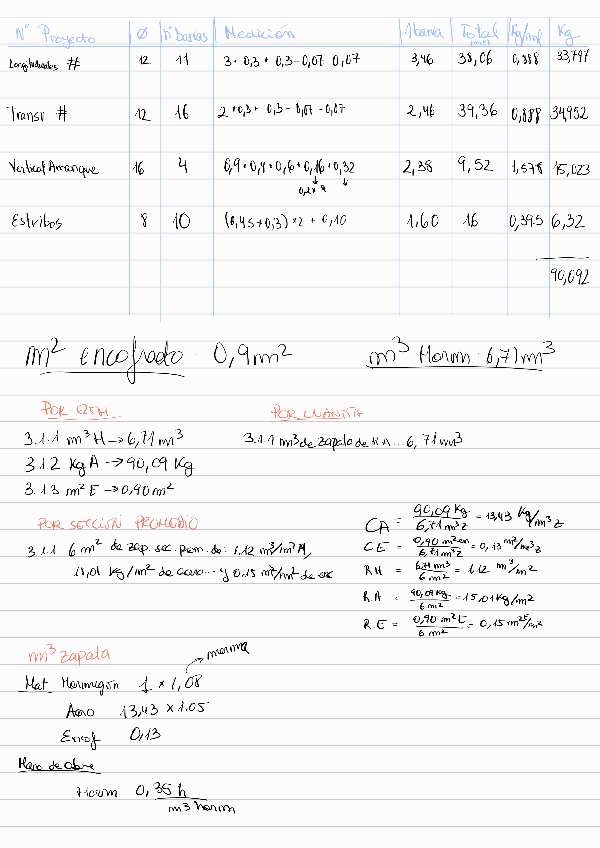 Nº Proyecto Ø Nº barras Medición 1 barra Total (ml) Kg/ml Kg
Longitudinales # 12 11 3 + 0,3 + 0,3 - 0,07 0,07 3,46 38,06 0,888 33,797
Transv # 12 16 2 + 0,3 + 0,3 - 0,07 - 0,07 2,46 39,36 0,888 34,952
Vertical Arranque 16 4 0,9 + 0,4 + 0,6 + 0,16 + 0,32 2,38 9,52 1,578 15,023
Estribos 8 10 (0,45+0,3) × 2 + 0,10 1,60 16 0,395 6,32
90,092
m² encofrado: 0,9m² m³ Horm: 6,71m³
POR CUANTIA
3.1.1 m³ H → 6,71 m³ 3.1.1 m³ de zapata de H.A ... 6,71 m³
3.1.2 Kg A → 90,09 Kg
3.1.3 m² E → 0,90 m²
POR SECCION PROMEDIO
3.1.1 6 m² de zap. sec. prom. de: 1.12 m³/m² H,
15,01 kg/m² de acero... y 0.15 m²/m² de enc
CA = 90,09 Kg / 6,71 m³z = 13,43 Kg/m³z
CE = 0,90 m² en / 6,71 m³z = 0,13 m²/m³z
RH = 6,71 m³ / 6 m² = 1.12 m³/m²
RA = 90,09 Kg / 6 m² = 15,01 Kg/m²
RE = 0,90 m² E / 6 m² = 0,15 m²E/m²
m³ zapata
merma
Mat Hormigón 1 × 1,08
Acero 13,43 × 1.05
Encof 0,13
Mano de obra
Horm 0,35 h / m³ horm